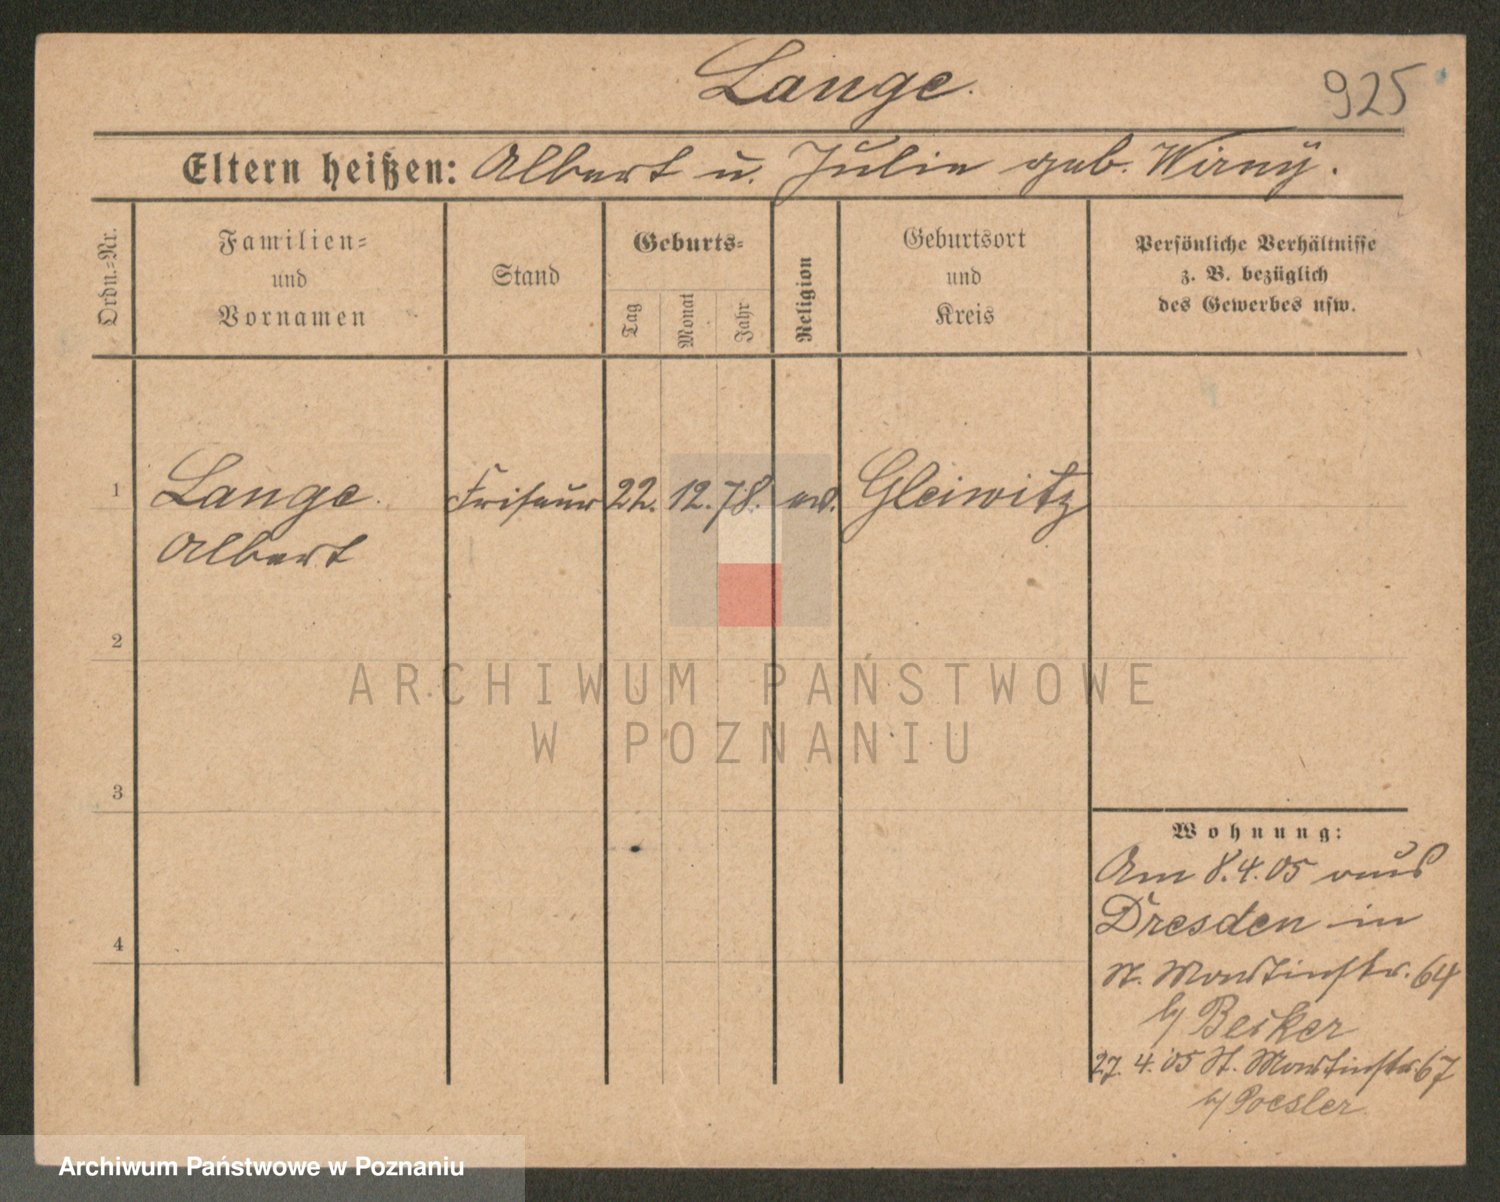 Lange.
925
Eltern heißen: Albert u. Julie geb. Wirny.
Ordn.=Nr.
Familien=
und
Vornamen
Stand
Geburts=
Tag
Monat
Jahr
Religion
Geburtsort
und
Kreis
Persönliche Verhältnisse
z. B. bezüglich
des Gewerbes usw.
1
Lange. Friseur 22. 12. 78. ev. Gleiwitz
Albert
2
3
4
Wohnung:
Am 8.4.05 aus
Dresden in
St. Martinstr. 64
b/ Beiker
27. 4. 05 St. Martinstr. 67
b/ Poesler
ARCHIWUM PAŃSTWOWE
W POZNANIU
Archiwum Państwowe w Poznaniu